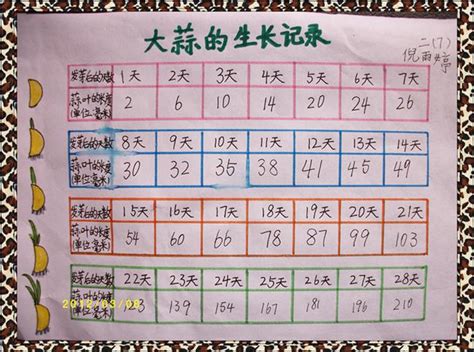 大蒜的生长记录
二(7)
倪雨婷
发芽后的天数 1天 2天 3天 4天 5天 6天 7天
蒜叶的长度(单位:毫米) 2 6 10 14 20 24 26
发芽后的天数 8天 9天 10天 11天 12天 13天 14天
蒜叶的长度(单位:毫米) 30 32 35 38 41 45 49
发芽后的天数 15天 16天 17天 18天 19天 20天 21天
蒜叶的长度(单位:毫米) 54 60 66 78 87 99 103
发芽后的天数 22天 23天 24天 25天 26天 27天 28天
蒜叶的长度(单位:毫米) 139 154 167 181 196 210
2012/03/08